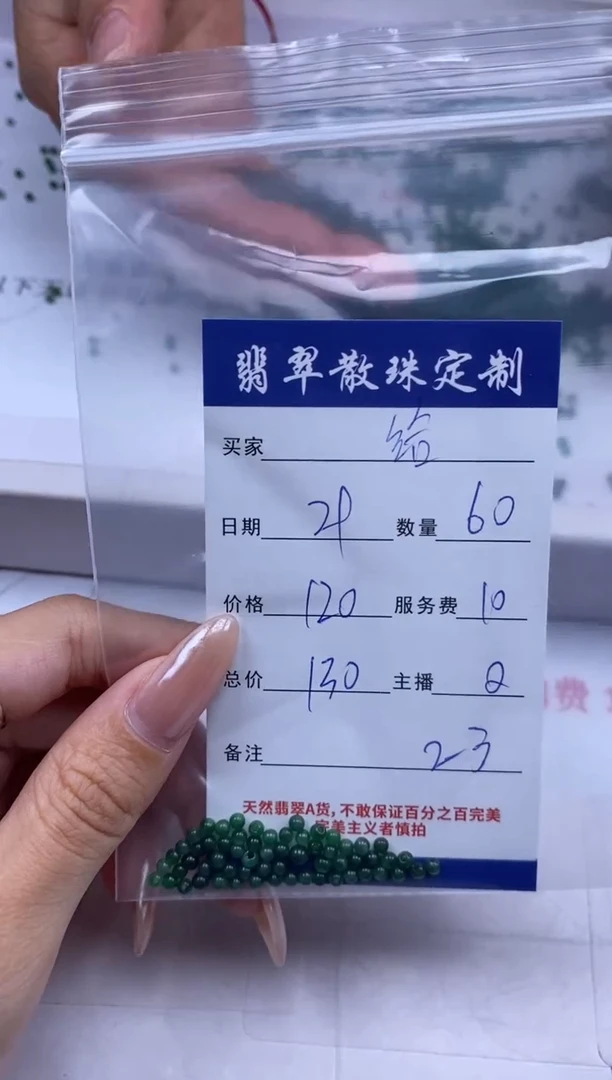 翡翠散珠定制
买家 给
日期 21 数量 60
价格 120 服务费 10
总价 130 主播 Q
备注 23
天然翡翠A货,不敢保证百分之百完美
完美主义者慎拍
费